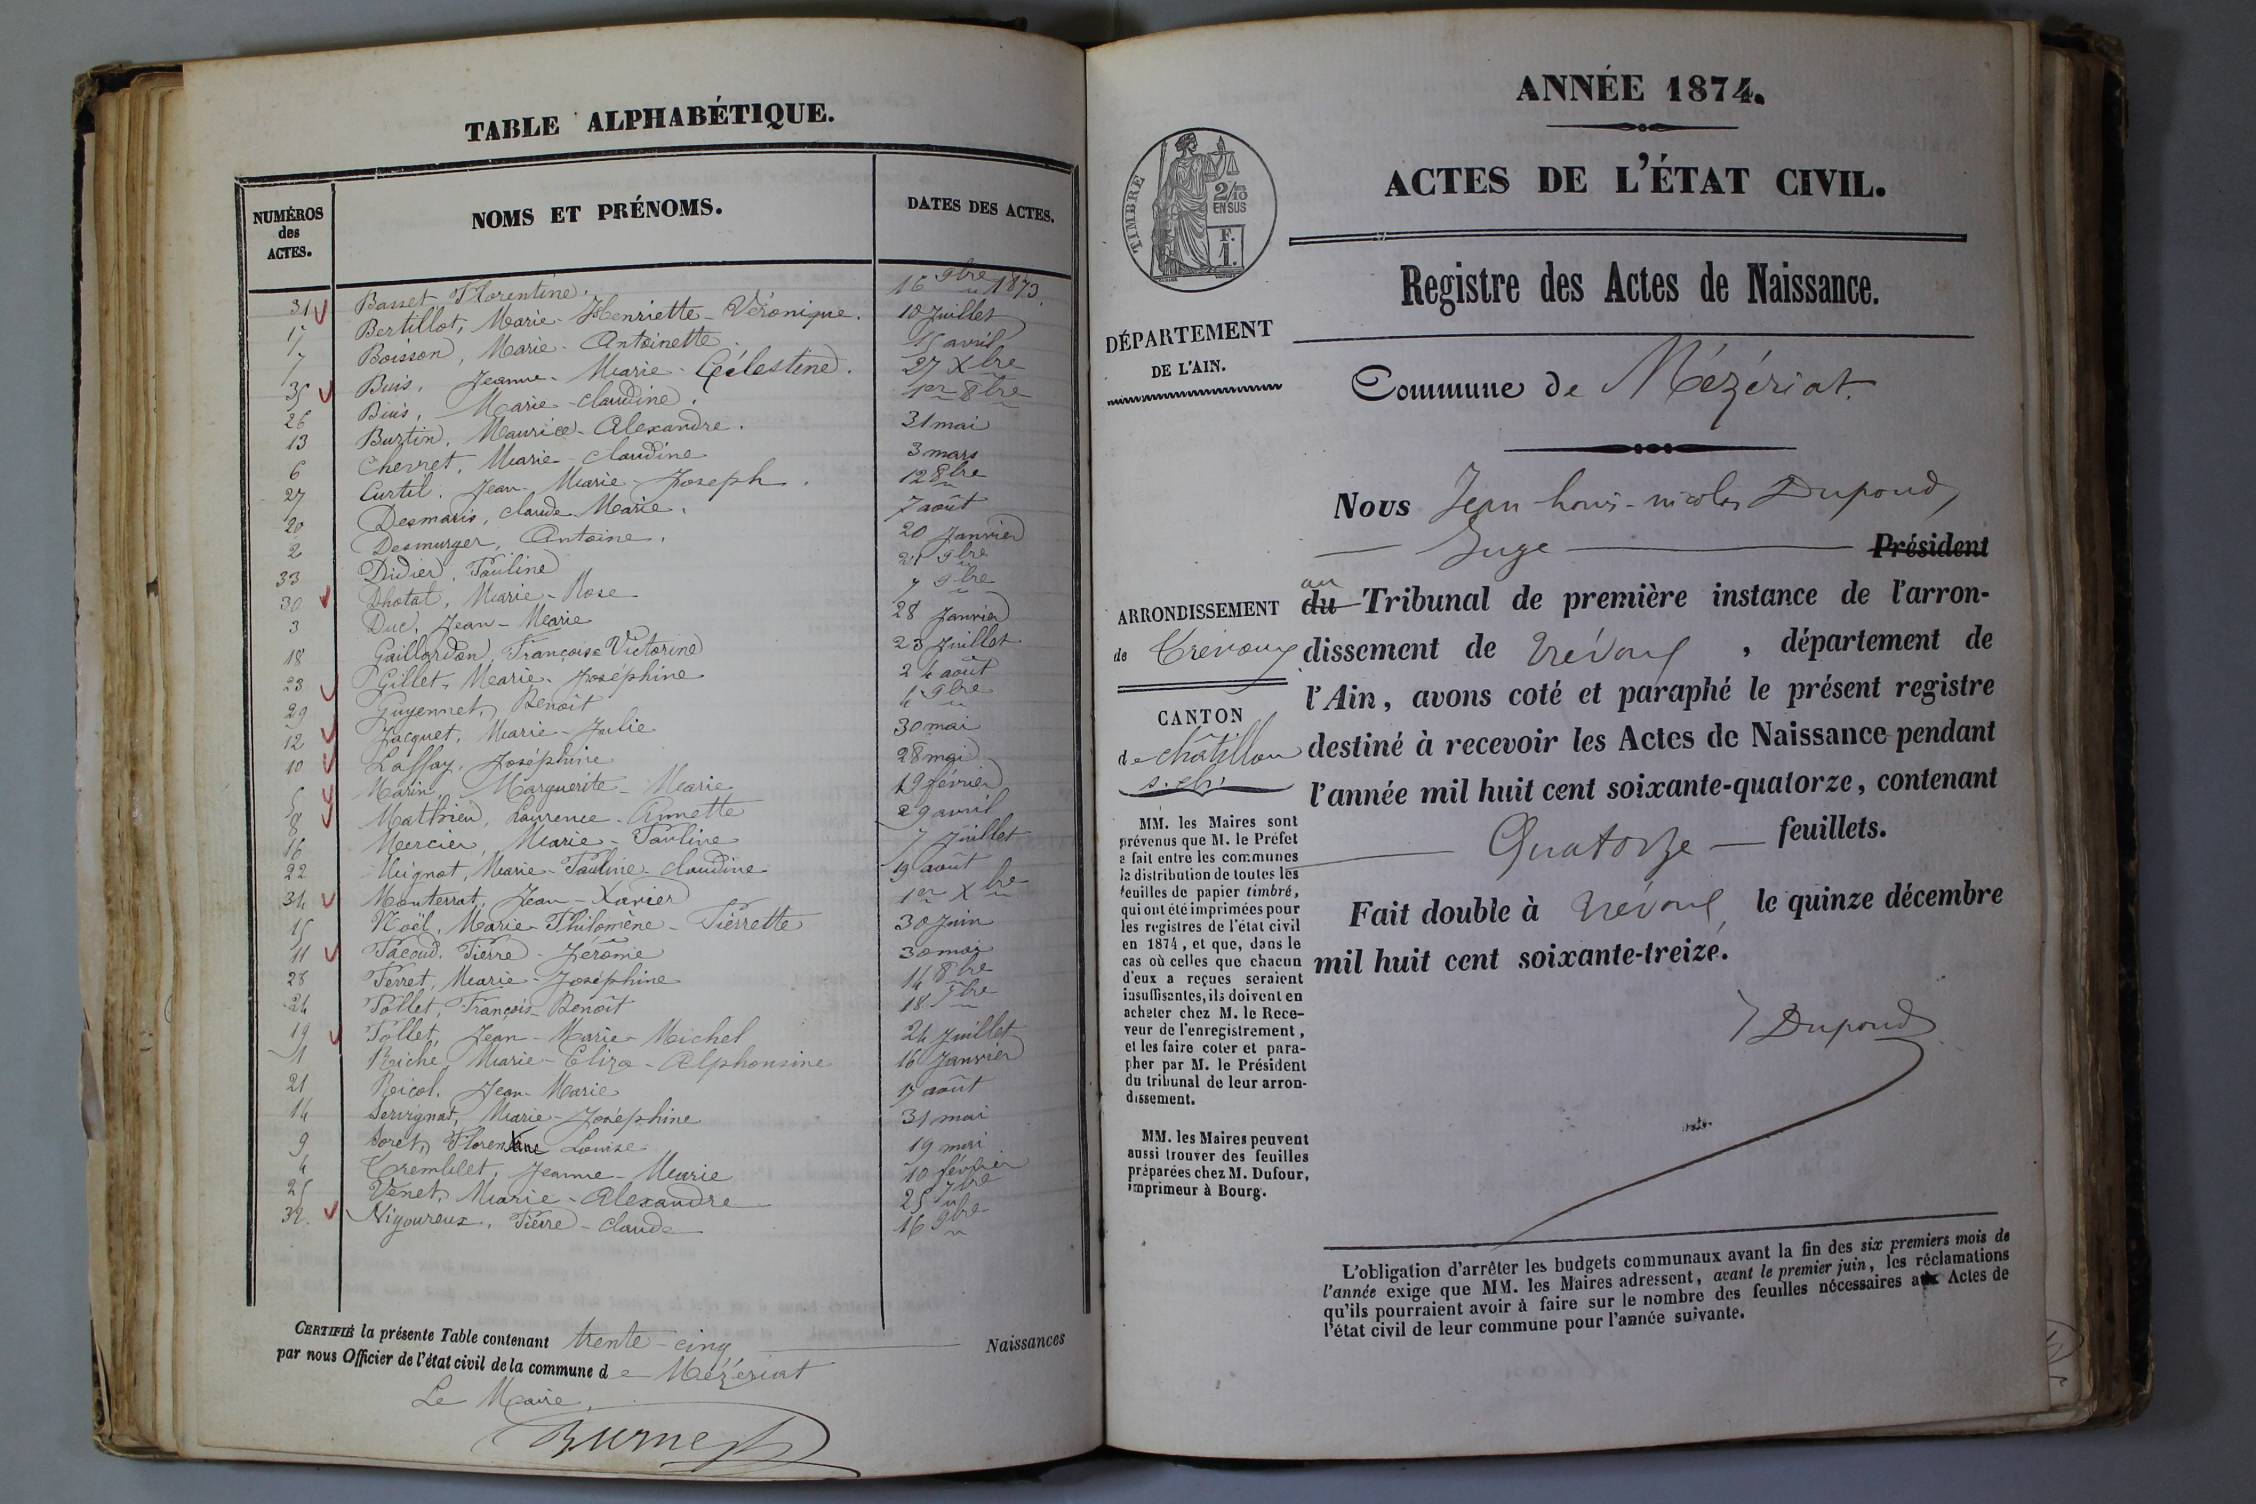 TABLE ALPHABÉTIQUE.
NUMÉROS des ACTES. NOMS ET PRÉNOMS. DATES DES ACTES.
31 Basset Florentine. 16 9bre 1873.
17 Bertillot, Marie-Henriette-Véronique. 10 Juillet
7 Boisson, Marie-Antoinette. 15 avril
35 Buis, Jeanne-Marie-Célestine. 27 Xbre
26 Buis, Marie-Claudine. 1er 8bre
13 Burtin, Maurice-Alexandre. 31 mai
6 Chevret, Marie-Claudine 3 mars
27 Curtil, Jean-Marie-Joseph. 12 8bre
20 Desmaris, Claude-Marie. 7 août
2 Desmurger, Antoine. 20 Janvier
33 Didier, Pauline 21 9bre
30 Dhotal, Marie-Rose 7 9bre
3 Duc, Jean-Marie 28 Janvier
18 Gaillardon, Françoise Victorine 23 Juillet
23 Gillet, Marie-Joséphine 24 août
29 Guyennet, Benoît 4 9bre
12 Jacquet, Marie-Julie 30 mai
10 Laffay, Joséphine 28 mai
5 Marin, Marguerite-Marie 19 février
8 Mathieu, Laurence-Annette 29 avril
16 Mercier, Marie-Pauline 7 Juillet
22 Mignot, Marie-Pauline-Claudine 19 août
34 Monterrat, Jean-Xavier 1er Xbre
15 Noël, Marie-Philomène-Pierrette 30 Juin
11 Pacoud, Pierre-Jérôme 30 mai
28 Perret, Marie-Joséphine 14 8bre
24 Pollet, François-Benoît 18 7bre
19 Pollet, Jean-Marie-Michel 24 Juillet
1 Riche, Marie-Eliza-Alphonsine 16 Janvier
21 Ricol, Jean-Marie 17 août
14 Servignat, Marie-Joséphine 31 mai
9 Soret, Florentine Louise 19 mai
4 Tremblet, Jeanne-Marie 10 février
25 Venet, Marie-Alexandre 25 7bre
32. Vigoureux, Pierre-Claude 16 9bre
CERTIFIÉ la présente Table contenant trente-cinq Naissances
par nous Officier de l'état civil de la commune de Mézériat
Le Maire,
ANNÉE 1874.
ACTES DE L'ÉTAT CIVIL.
TIMBRE
2/10 EN SUS
F. 1.
Registre des Actes de Naissance.
DÉPARTEMENT
DE L'AIN.
Commune de Mézériat.
Nous Jean-Louis-Nicolas Dupoud,
Juge Président
au
du Tribunal de première instance de l'arron-
dissement de Trévoux, département de
l'Ain, avons coté et paraphé le présent registre
destiné à recevoir les Actes de Naissance pendant
l'année mil huit cent soixante-quatorze, contenant
Quatorze feuillets.
Fait double à Trévoux, le quinze décembre
mil huit cent soixante-treize.
Dupoud
ARRONDISSEMENT
de Trévoux
CANTON
de Châtillon
MM. les Maires sont
prévenus que M. le Préfet
a fait entre les communes
la distribution de toutes les
feuilles de papier timbré,
qui ont été imprimées pour
les registres de l'état civil
en 1874, et que, dans le
cas où celles que chacun
d'eux a reçues seraient
insuffisantes, ils doivent en
acheter chez M. le Rece-
veur de l'enregistrement,
et les faire coter et para-
pher par M. le Président
du tribunal de leur arron-
dissement.
MM. les Maires peuvent
aussi trouver des feuilles
préparées chez M. Dufour,
imprimeur à Bourg.
L'obligation d'arrêter les budgets communaux avant la fin des six premiers mois de
l'année exige que MM. les Maires adressent, avant le premier juin, les réclamations
qu'ils pourraient avoir à faire sur le nombre des feuilles nécessaires aux Actes de
l'état civil de leur commune pour l'année suivante.